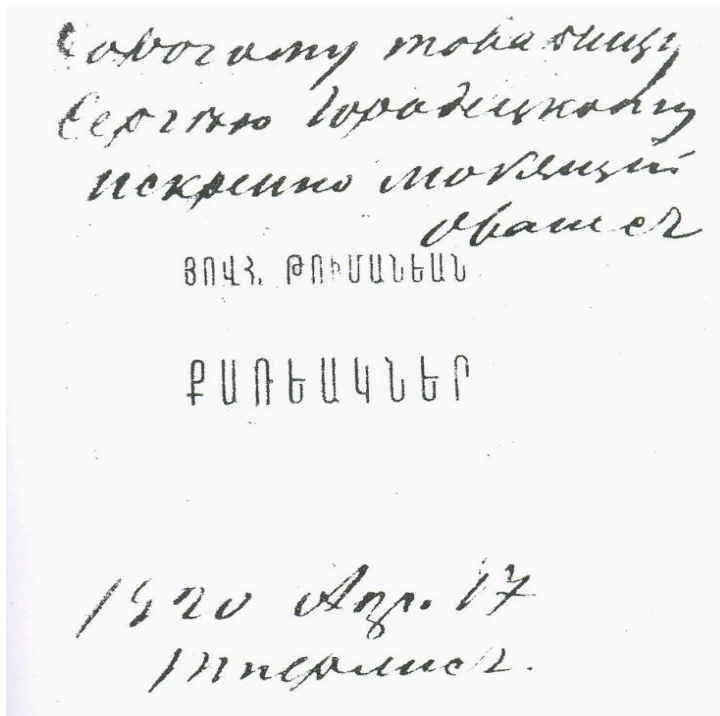 Дорогому товарищу
Сергею Городецкому
искренно любящий
Ованес
ՅՈՎՀ. ԹՈՒՄԱՆԵԱՆ
ՔԱՌԵԱԿՆԵՐ
1920 Апр. 17
Тифлисъ.